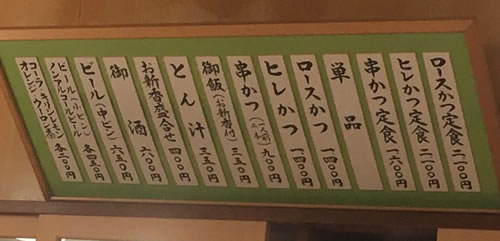 ロースかつ定食 二一〇〇円
ヒレかつ定食 二一〇〇円
串かつ定食 一六〇〇円
単品
ロースかつ 一四〇〇円
ヒレかつ 一四〇〇円
串かつ 九〇〇円
御飯(お新香付) 三五〇円
とん汁 三五〇円
お新香盛合せ 四〇〇円
御酒 六〇〇円
ビール(中ビン) 六五〇円
ビール(小ビン)
ノンアルコールビール 各四五〇円
コーラ・キリンレモン
オレンジ・ウーロン茶 各二〇〇円